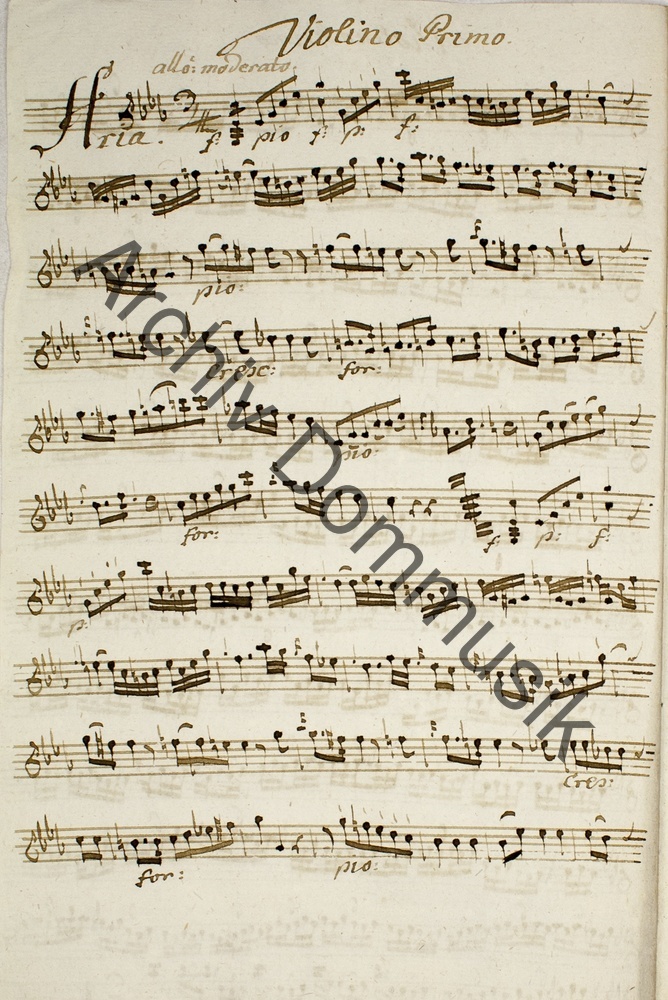 Violino Primo.
allo: moderato.
Aria. f: pio f: p: f:
pio:
Cresc: for:
pio:
for: f: p: f:
p:
Cres:
for: pio:
Archiv Dommusik